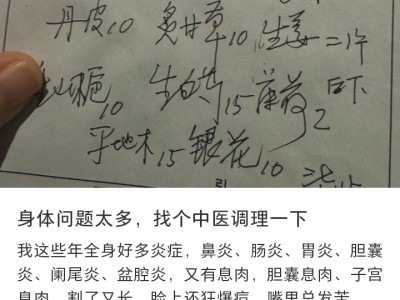 丹皮10 炙甘草10 生姜二片
山栀10 生白芍15 薄荷2 后下
平地木15 银花10
引
身体问题太多，找个中医调理一下
我这些年全身好多炎症，鼻炎、肠炎、胃炎、胆囊
炎、阑尾炎、盆腔炎，又有息肉，胆囊息肉、子宫
息肉，割了又长，脸上还狂爆痘，嘴里总发苦，